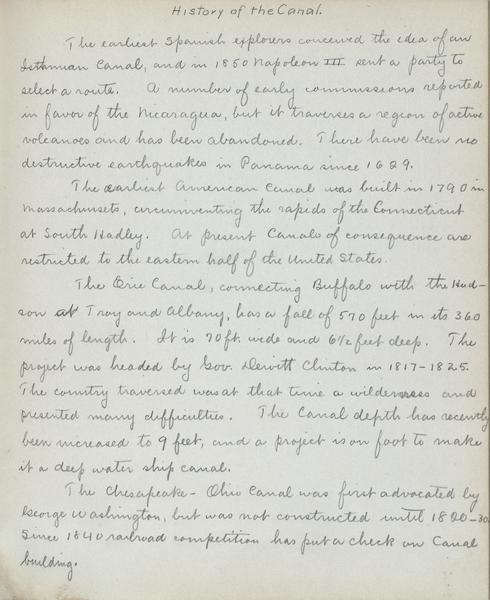 History of the Canal.
The earliest Spanish explorers conceived the idea of an
Isthmian Canal, and in 1850 Napoleon III sent a party to
select a route. A number of early commissions reported
in favor of the Nicaragua, but it traverses a region of active
volcanoes and has been abandoned. There have been no
destructive earthquakes in Panama since 1629.
The earliest American Canal was built in 1790 in
Massachusets, circumventing the rapids of the Connecticut
at South Hadley. At present Canals of consequence are
restricted to the eastern half of the United States.
The Erie Canal, connecting Buffalo with the Hud-
son at Troy and Albany, has a fall of 570 feet in its 360
miles of length. It is 70 ft. wide and 6½ feet deep. The
project was headed by Gov. Dewitt Clinton in 1817-1825.
The country traversed was at that time a wilderness and
presented many difficulties. The Canal depth has recently
been increased to 9 feet, and a project is on foot to make
it a deep water ship canal.
The Chesapeake - Ohio Canal was first advocated by
George Washington, but was not constructed until 1820-30.
Since 1840 railroad competition has put a check on Canal
building.